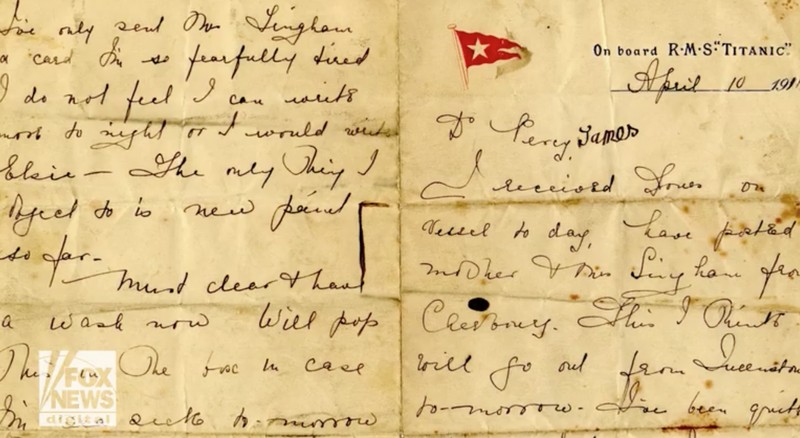 I've only sent Mrs Lingham
a card I'm so fearfully tired
I do not feel I can write
more to night or I would write
Elsie — The only thing I
object to is new paint
so far —
Must clear & have
a wash now Will pop
This in The box in case
I'm sick to-morrow
FOX
NEWS
digital
On board R·M·S "TITANIC".
April 10 191
Dr Percy, James
I received Yours on
vessel to day, have posted
mother & Mrs Lingham from
Cherbourg. This I Think
will go out from Queenstown
to-morrow. I've been quite